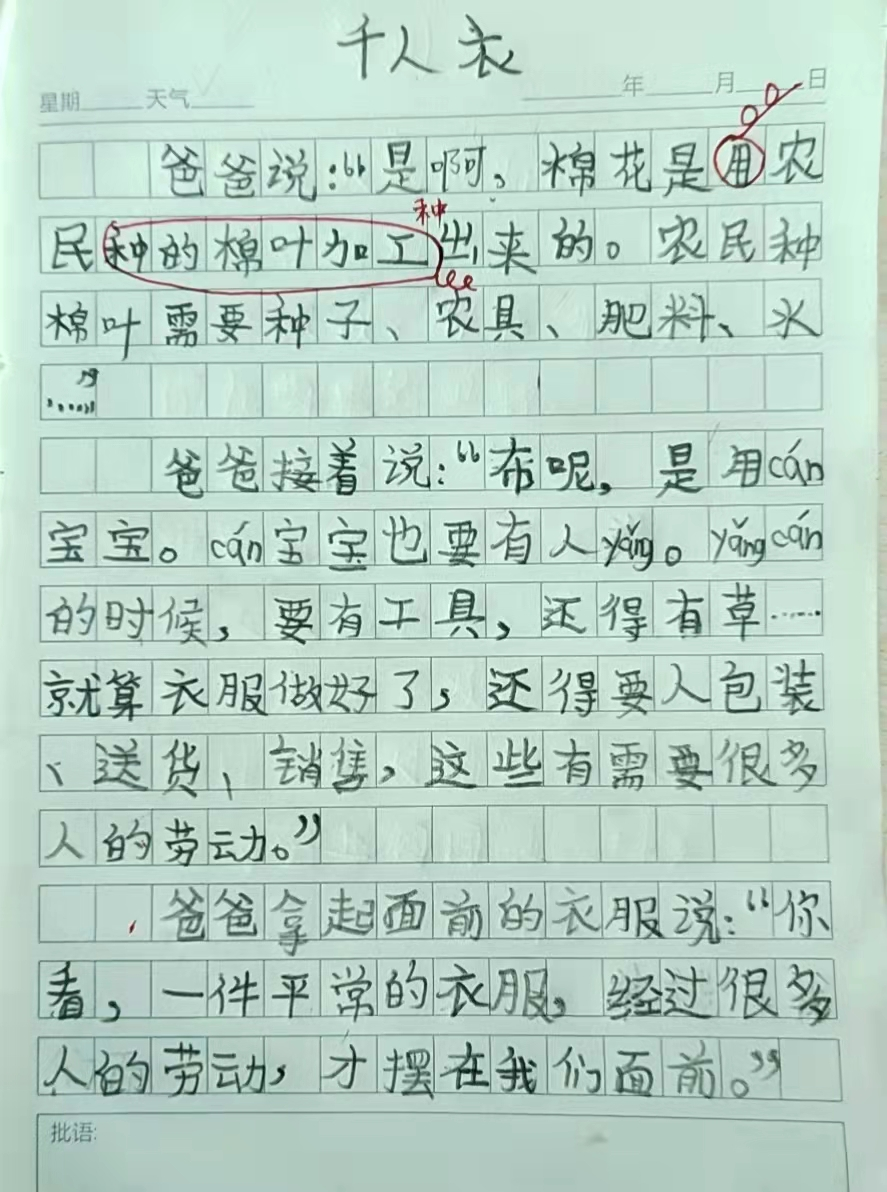 千人衣
星期 天气 年 月 日
爸爸说：“是啊，棉花是用农
种
民种的棉叶加工出来的。农民种
棉叶需要种子、农具、肥料、水
……”
爸爸接着说：“布呢，是用cán
宝宝。cán宝宝也要有人yǎng。yǎng cán
的时候，要有工具，还得有草……
就算衣服做好了，还得要人包装
、送货、销售，这些有需要很多
人的劳动。”
爸爸拿起面前的衣服说：“你
看，一件平常的衣服，经过很多
人的劳动，才摆在我们面前。”
批语: